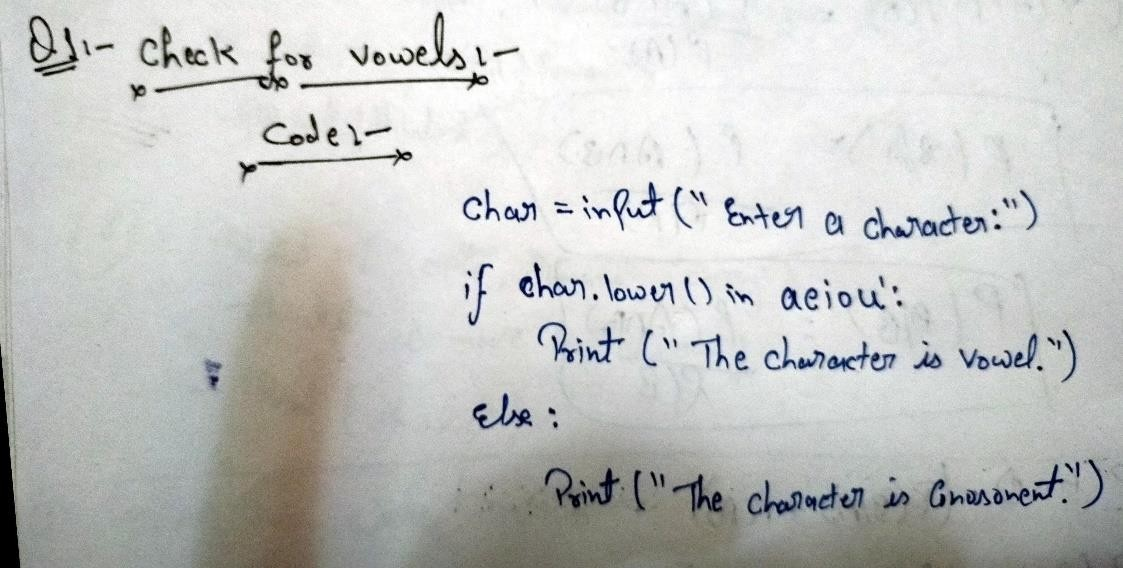 Q1:- Check for vowels:-
Code:-
Char = input (" Enter a character:")
if char.lower() in aeiou':
Print (" The character is Vowel.")
Else :
Print (" The character is Conosonent.")